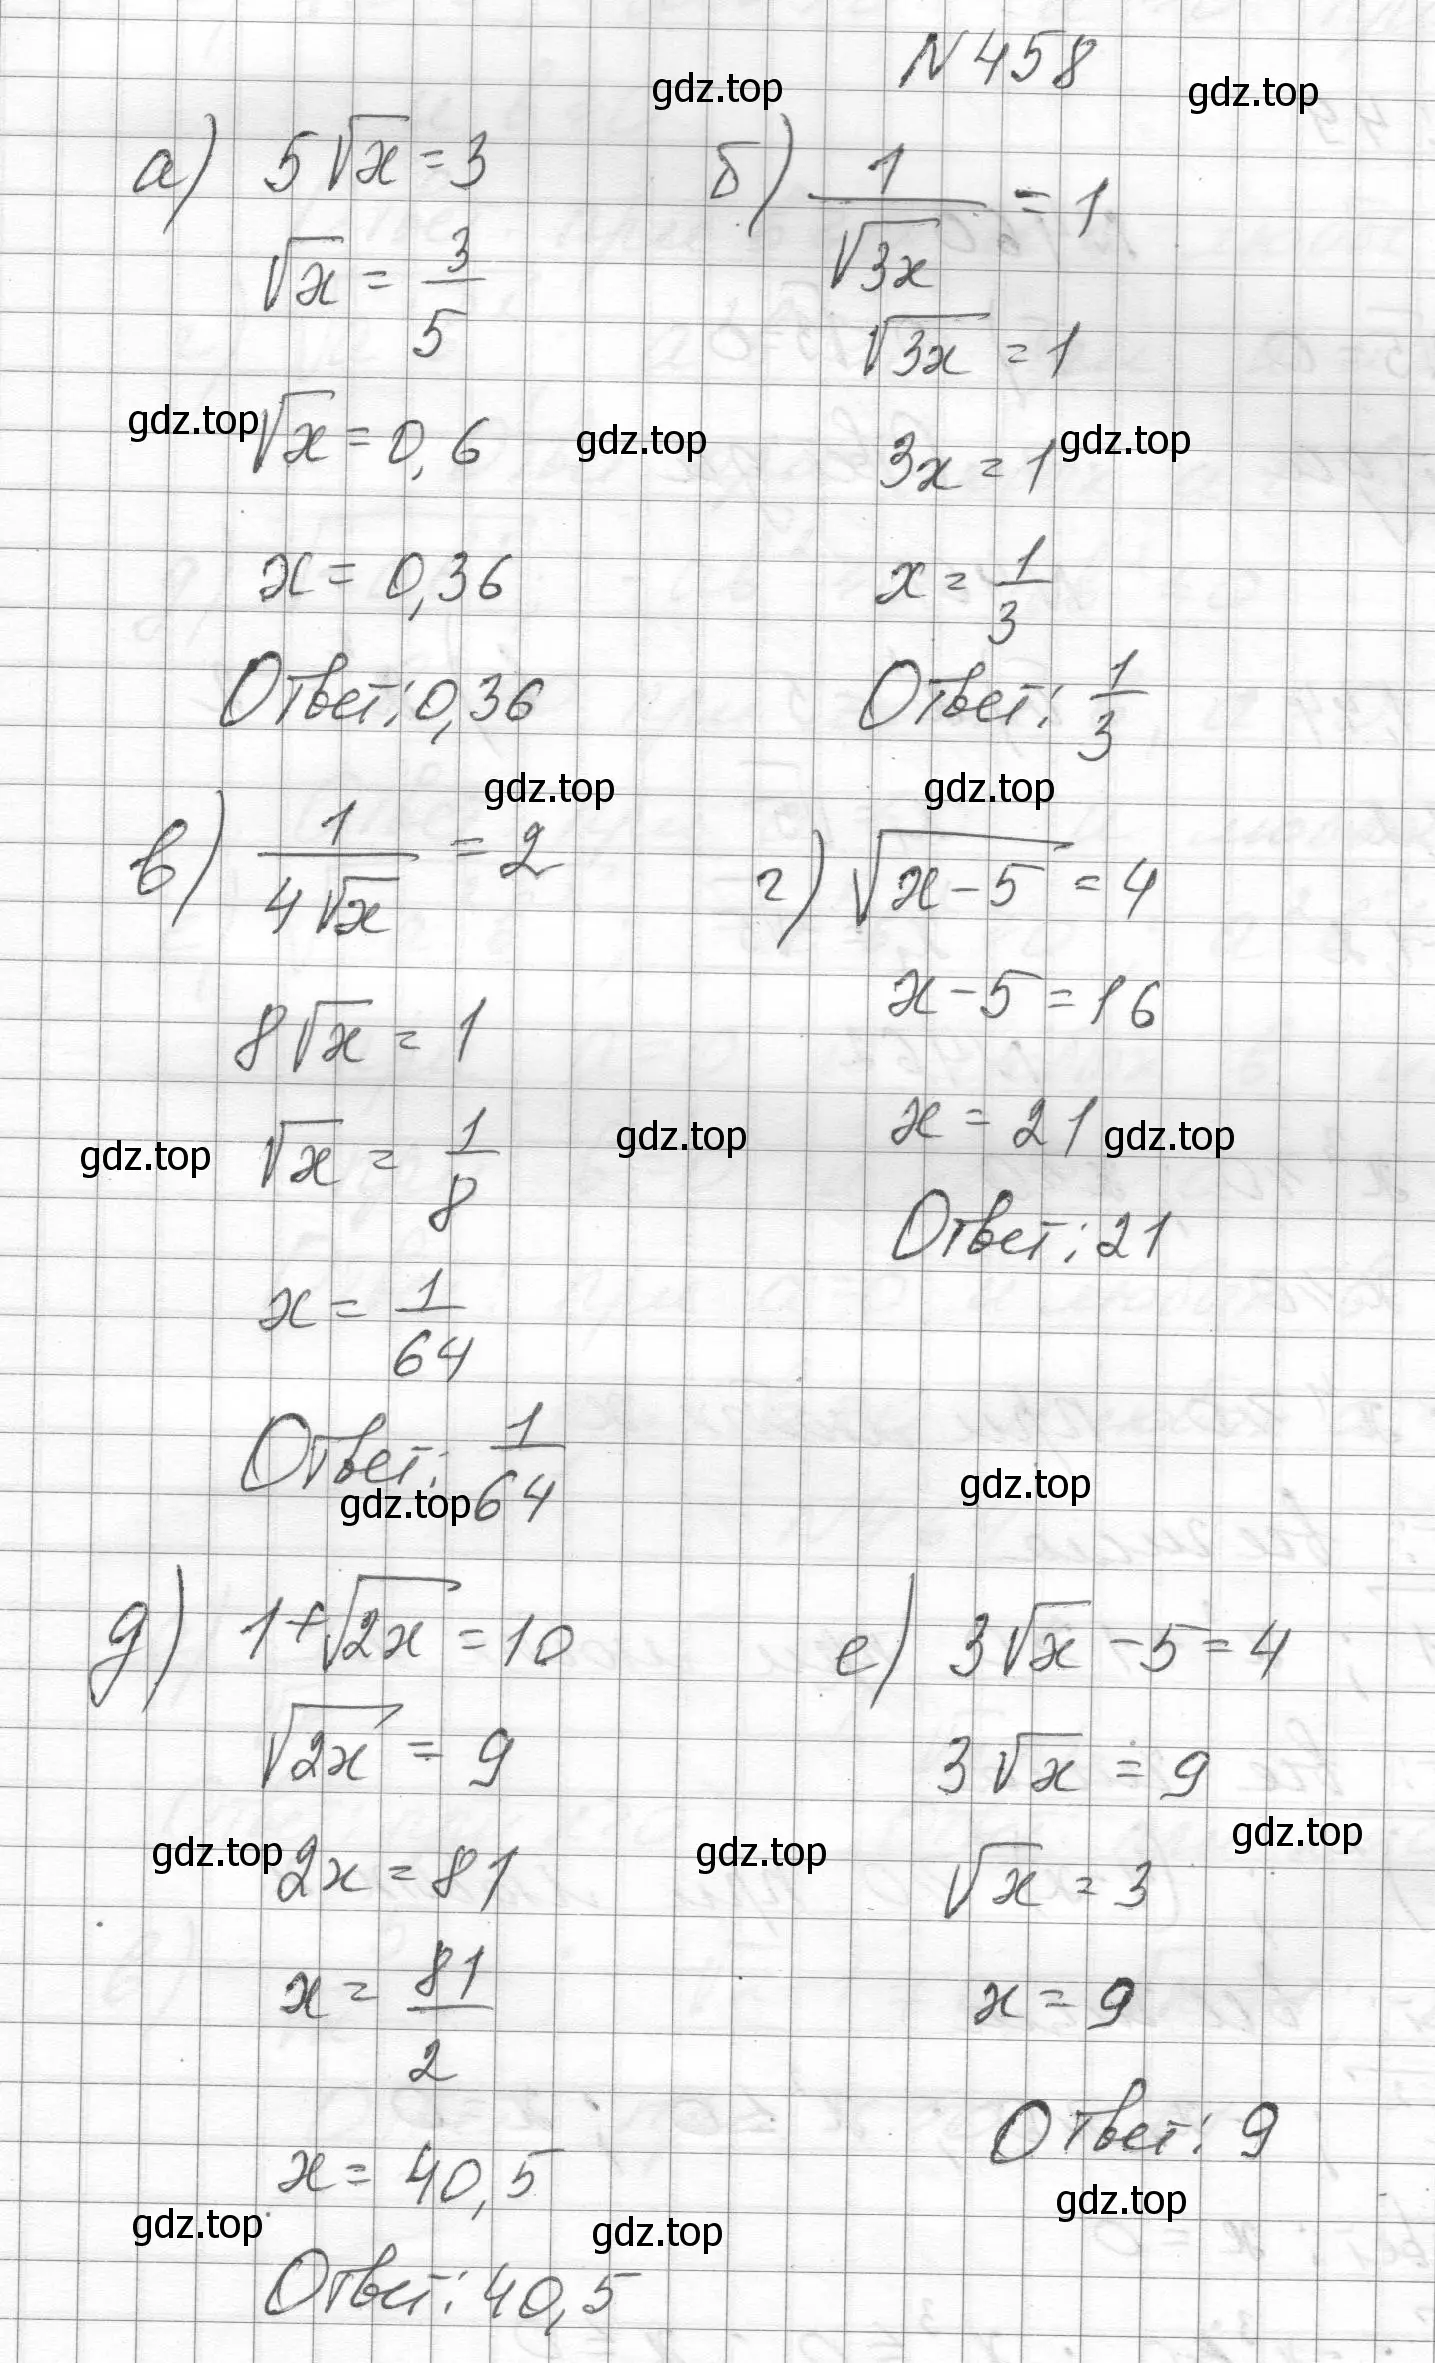 N 458
gdz.top gdz.top
а) 5√x = 3
√x = 3/5
gdz.top √x = 0,6 gdz.top
x = 0,36
Ответ: 0,36
б) 1/√3x = 1
√3x = 1
3x = 1 gdz.top
x = 1/3
Ответ: 1/3
gdz.top gdz.top
в) 1/4√x = 2
8√x = 1
gdz.top √x = 1/8 gdz.top
x = 1/64
Ответ: 1/64
gdz.top
г) √x - 5 = 4
x - 5 = 16
x = 21 gdz.top
Ответ: 21
gdz.top
д) 1 + √2x = 10
√2x = 9
gdz.top 2x = 81 gdz.top
x = 81/2
x = 40,5
gdz.top gdz.top
Ответ: 40,5
е) 3√x - 5 = 4
3√x = 9
gdz.top
√x = 3
x = 9
Ответ: 9
gdz.top